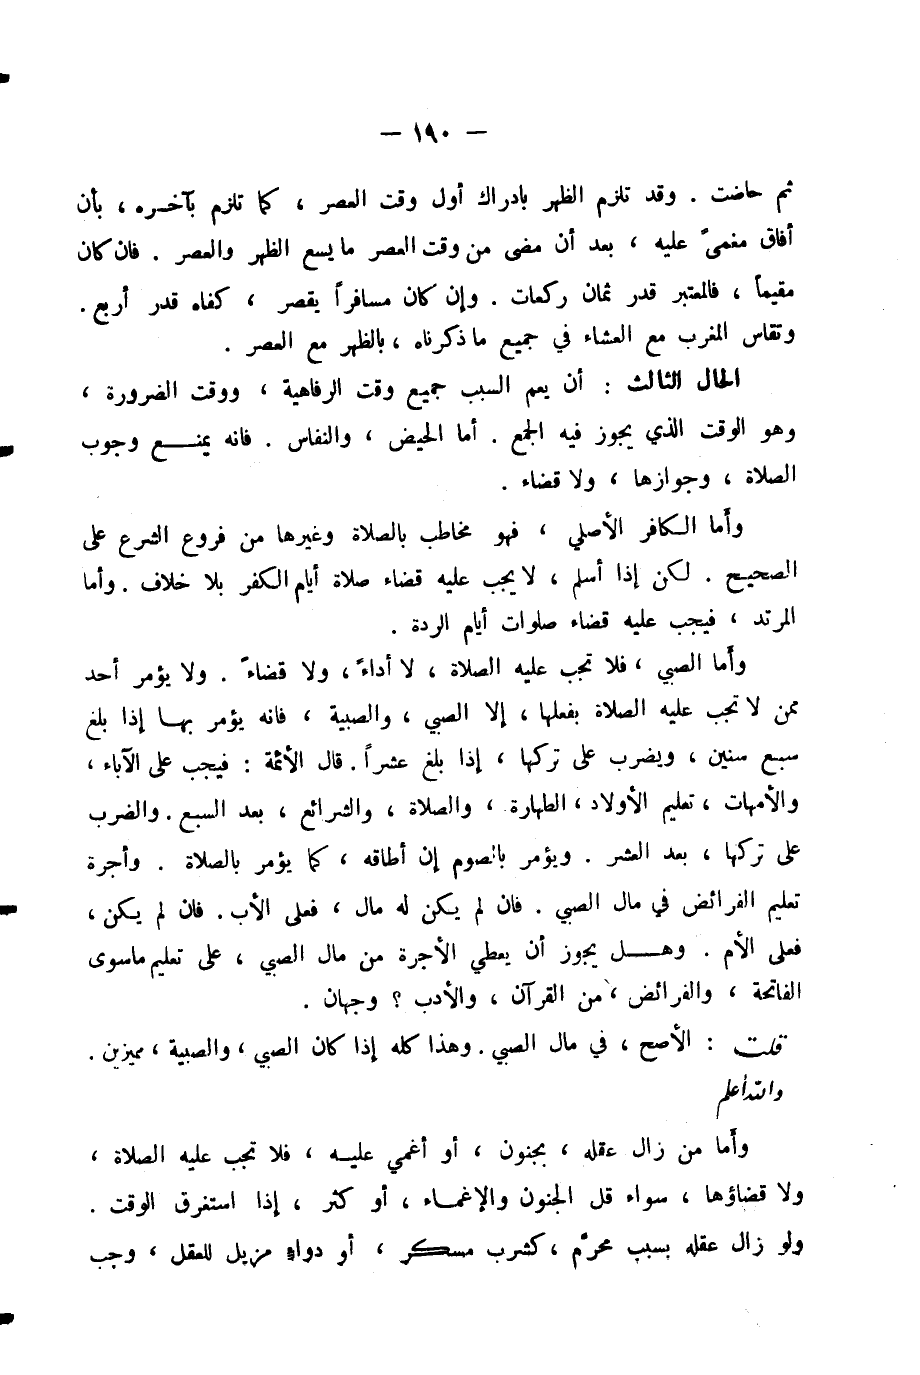 — ١٩٠ —
ثم حاضت . وقد تلزم الظهر بادراك أول وقت العصر ، كما تلزم بآخـره ، بأن
أفاق مغمىً عليه ، بعد أن مضى من وقت العصر ما يسع الظهر والعصر . فان كان
مقيماً ، فالمعتبر قدر ثمان ركعات . وإن كان مسافراً يقصر ، كفاه قدر أربع .
وتقاس المغرب مع العشاء في جميع ما ذكرناه ، بالظهر مع العصر .
الحال الثالث : أن يعم السبب جميع وقت الرفاهية ، ووقت الضرورة ،
وهو الوقت الذي يجوز فيه الجمع . أما الحيض ، والنفاس . فانه يمنـــع وجوب
الصلاة ، وجوازها ، ولا قضاء .
وأما الـكافر الأصلي ، فهو مخاطب بالصلاة وغيرها من فروع الشرع على
الصحيح . لكن إذا أسلم ، لا يجب عليه قضاء صلاة أيام الكفر بلا خلاف . وأما
المرتد ، فيجب عليه قضاء صلوات أيام الردة .
وأما الصبي ، فلا تجب عليه الصلاة ، لا أداءً ، ولا قضاءً . ولا يؤمر أحد
ممن لا تجب عليه الصلاة بفعلها ، إلا الصبي ، والصبية ، فانه يؤمر بهـا إذا بلغ
سبع سنين ، ويضرب على تركها ، إذا بلغ عشراً . قال الأئمة : فيجب على الآباء ،
والأمهات ، تعليم الأولاد ، الطهارة ، والصلاة ، والشرائع ، بعد السبع . والضرب
على تركها ، بعد العشر . ويؤمر بالصوم إن أطاقه ، كما يؤمر بالصلاة . وأجرة
تعليم الفرائض في مال الصبي . فان لم يكن له مال ، فعلى الأب . فان لم يكن ،
فعلى الأم . وهـــل يجوز أن يعطي الأجرة من مال الصبي ، على تعليم ماسوى
الفاتحة ، والفرائض ، من القرآن ، والأدب ؟ وجهان .
قلت : الأصح ، في مال الصبي . وهذا كله إذا كان الصبي ، والصبية ، مميزين .
والله أعلم
وأما من زال عقله ، بجنون ، أو أغمي عليـه ، فلا تجب عليه الصلاة ،
ولا قضاؤها ، سواء قل الجنون والإغمـاء ، أو كثر ، إذا استغرق الوقت .
ولو زال عقله بسبب محرَّم ، كشرب مسكـر ، أو دواء مزيل للعقل ، وجب